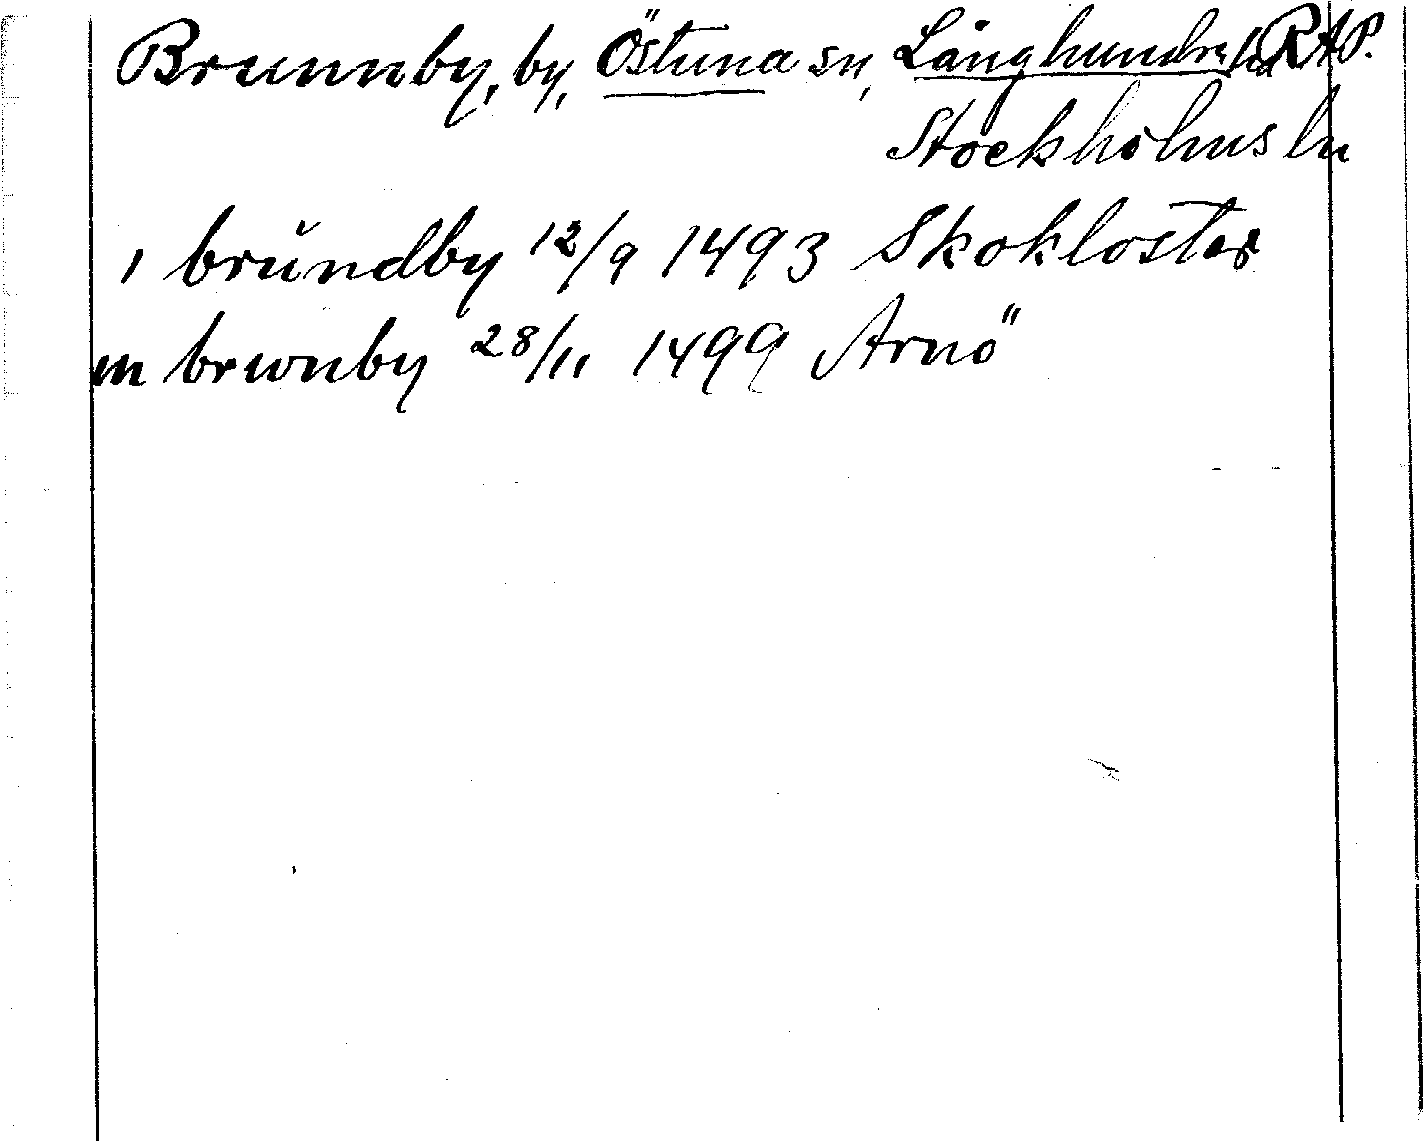 Brunnby, by, Östuna sn, Långhundra hd RAP.
Stockholms ln
ı brŭndby 12/9 1493 Skokloster
m brwnby 28/11 1499 Arnö